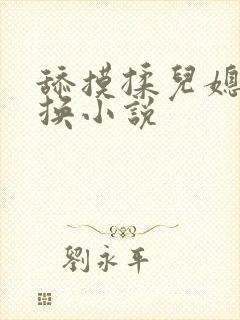 舔摸揉兒媳
换小說
劉永平